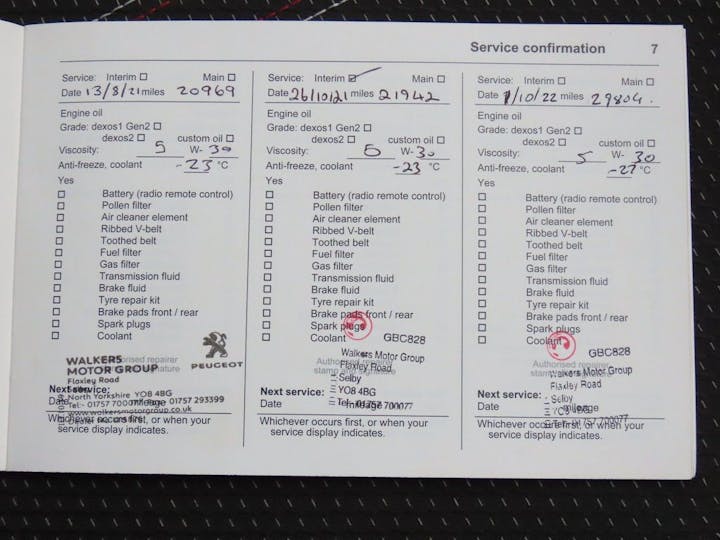 Service confirmation 7
Service: Interim ☐ Main ☐
Date 13/8/21 miles 20969
Engine oil
Grade: dexos1 Gen2 ☐
dexos2 ☐ custom oil ☐
Viscosity: 5 W- 30
Anti-freeze, coolant -23 °C
Yes
☐ Battery (radio remote control)
☐ Pollen filter
☐ Air cleaner element
☐ Ribbed V-belt
☐ Toothed belt
☐ Fuel filter
☐ Gas filter
☐ Transmission fluid
☐ Brake fluid
☐ Tyre repair kit
☐ Brake pads front / rear
☐ Spark plugs
☐ Coolant
WALKERS
MOTOR GROUP
PEUGEOT
Flaxley Road
North Yorkshire YO8 4BG
Next service:
Date
01757 293399
www.walkersmotorgroup.co.uk
Whichever occurs first, or when your
service display indicates.
Service: Interim ☑ Main ☐
Date 26/10/21 miles 21942
Engine oil
Grade: dexos1 Gen2 ☐
dexos2 ☐ custom oil ☐
Viscosity: 5 W- 30
Anti-freeze, coolant -23 °C
Yes
☐ Battery (radio remote control)
☐ Pollen filter
☐ Air cleaner element
☐ Ribbed V-belt
☐ Toothed belt
☐ Fuel filter
☐ Gas filter
☐ Transmission fluid
☐ Brake fluid
☐ Tyre repair kit
☐ Brake pads front / rear
☐ Spark plugs
☐ Coolant
GBC828
Walkers Motor Group
Flaxley Road
Selby
YO8 4BG
Tel- 01757 700077
Next service:
Date mileage
Whichever occurs first, or when your
service display indicates.
Service: Interim ☐ Main ☐
Date /10/22 miles 29804.
Engine oil
Grade: dexos1 Gen2 ☐
dexos2 ☐ custom oil ☐
Viscosity: 5 W- 30
Anti-freeze, coolant °C
Yes
☐ Battery (radio remote control)
☐ Pollen filter
☐ Air cleaner element
☐ Ribbed V-belt
☐ Toothed belt
☐ Fuel filter
☐ Gas filter
☐ Transmission fluid
☐ Brake fluid
☐ Tyre repair kit
☐ Brake pads front / rear
☐ Spark plugs
☐ Coolant
GBC828
Authorised repairer
Walkers Motor Group
Flaxley Road
Selby
Next service:
Date mileage
01757 700077
Whichever occurs first, or when your
service display indicates.